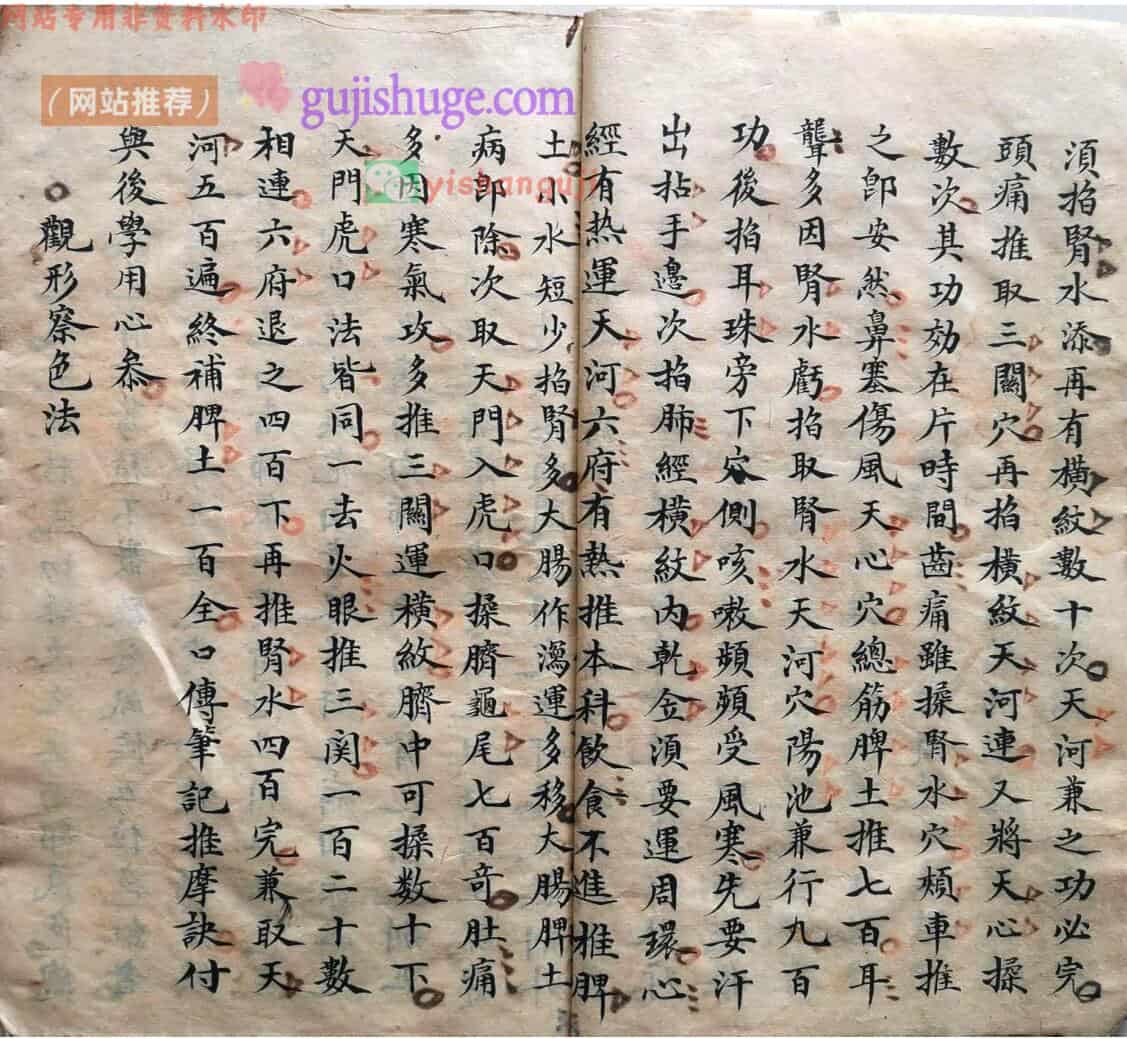 网站专用非资料水印
（网站推荐）
gujishuge.com
yishanguji
須掐腎水添再有橫紋數十次天河兼之功必完
頭痛推取三關穴再掐橫紋天河連又將天心揉
數次其功効在片時間齒痛雖揉腎水穴頰車推
之即安然鼻塞傷風天心穴總筋脾土推七百耳
聾多因腎水虧掐取腎水天河穴陽池兼行九百
功後掐耳珠旁下穴側咳嗽頻頻受風寒先要汗
出拈手邊次掐肺經橫紋內乾金須要運周環心
經有热運天河六府有熱推本科飲食不進推脾
土小水短少掐腎多大腸作瀉運多移大腸脾土
病即除次取天門入虎口揉臍龜尾七百奇肚痛
多因寒氣攻多推三關運橫紋臍中可揉数十下
天門虎口法皆同一去火眼推三関一百二十數
相連六府退之四百下再推腎水四百完兼取天
河五百遍終補脾土一百全口傳筆記推摩訣付
與後學用心叅
觀形察色法